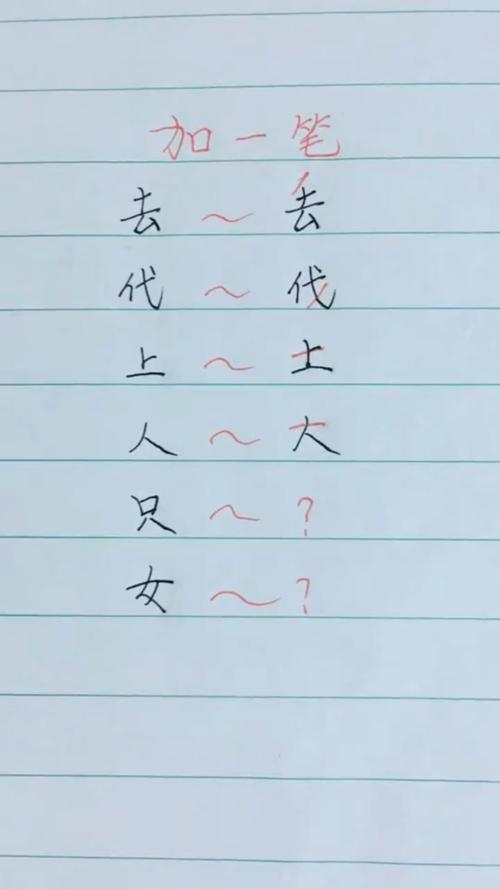 加一笔
去～丢
代～伐
上～士
人～大
只～?
女～?